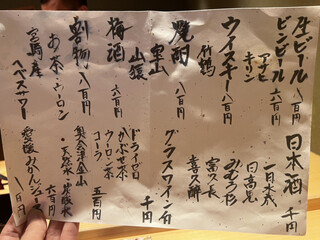 生ビール
ビンビール 六百円
アサヒ
キリン
ウイスキー 八百円
竹鶴
焼酎 八百円
宝山
山猿
梅酒 六百円
割物 八百円
お茶・ウーロン
宮崎産
ヘベスサワー
日本酒 千円
一白水成
日高見
みむろ杉
富久長
喜久酔
グラスワイン 白 千円
ドライゼロ
かぶせ茶
ウーロン茶
コーラ 五百円
奥会津金山
天然水・炭酸水 六百円
愛媛みかんジュース 八百円